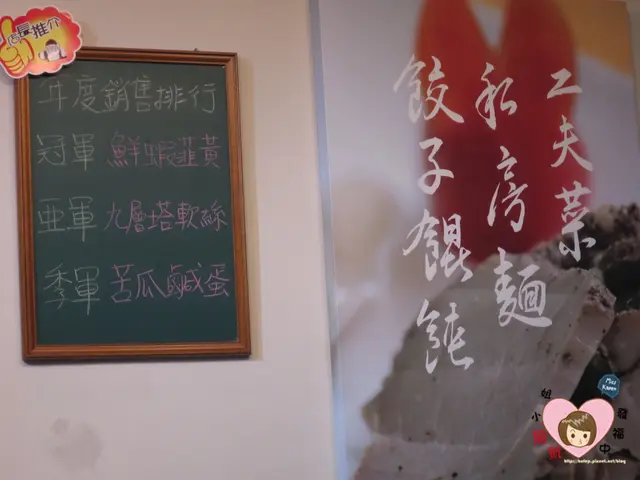 店長推介
年度銷售排行
冠軍 鮮蝦韮黃
亞軍 九層塔軟絲
季軍 苦瓜鹹蛋
工夫菜
私房麵
餃子餛飩
Miss Kammy
小姐
發福中
http://kainp.pixnet.net/blog